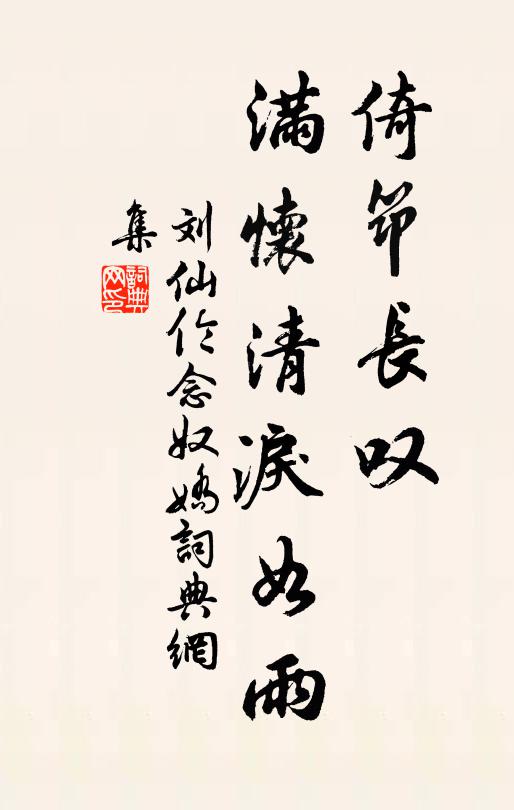 倚筇長叹
满懷清淚如雨
刘仙伦念奴嬌詞典網
集
詞典网印